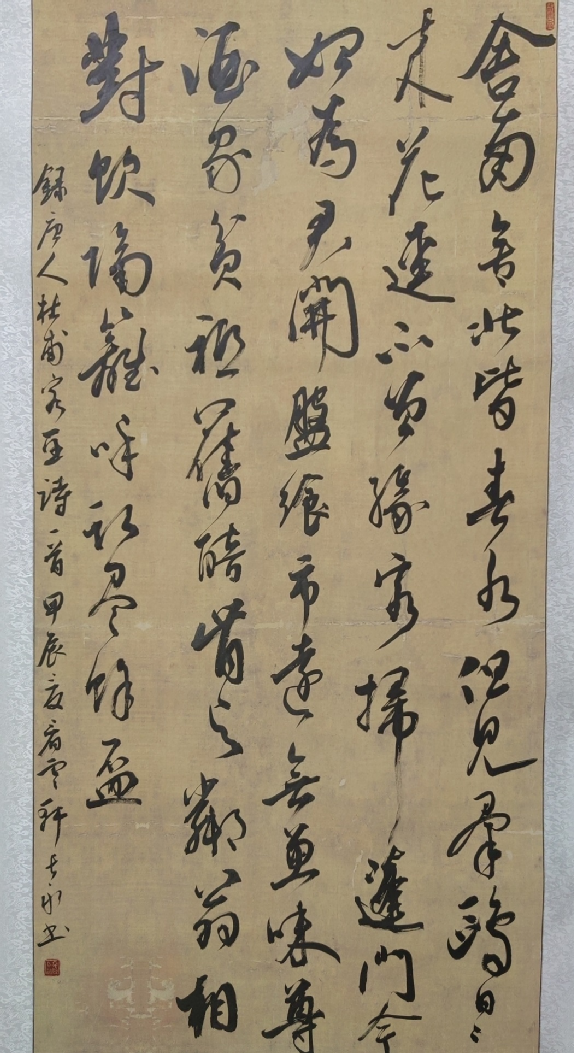 舍南舍北皆春水但見羣鷗日〻
来花逕不曾緣客掃蓬門今
始為君開盤飧市遠無兼味尊
酒家貧祗舊醅肯与鄰翁相
對飲隔籬呼取尽餘盃
録唐人杜甫客至詩一首甲辰夏看雲軒永书